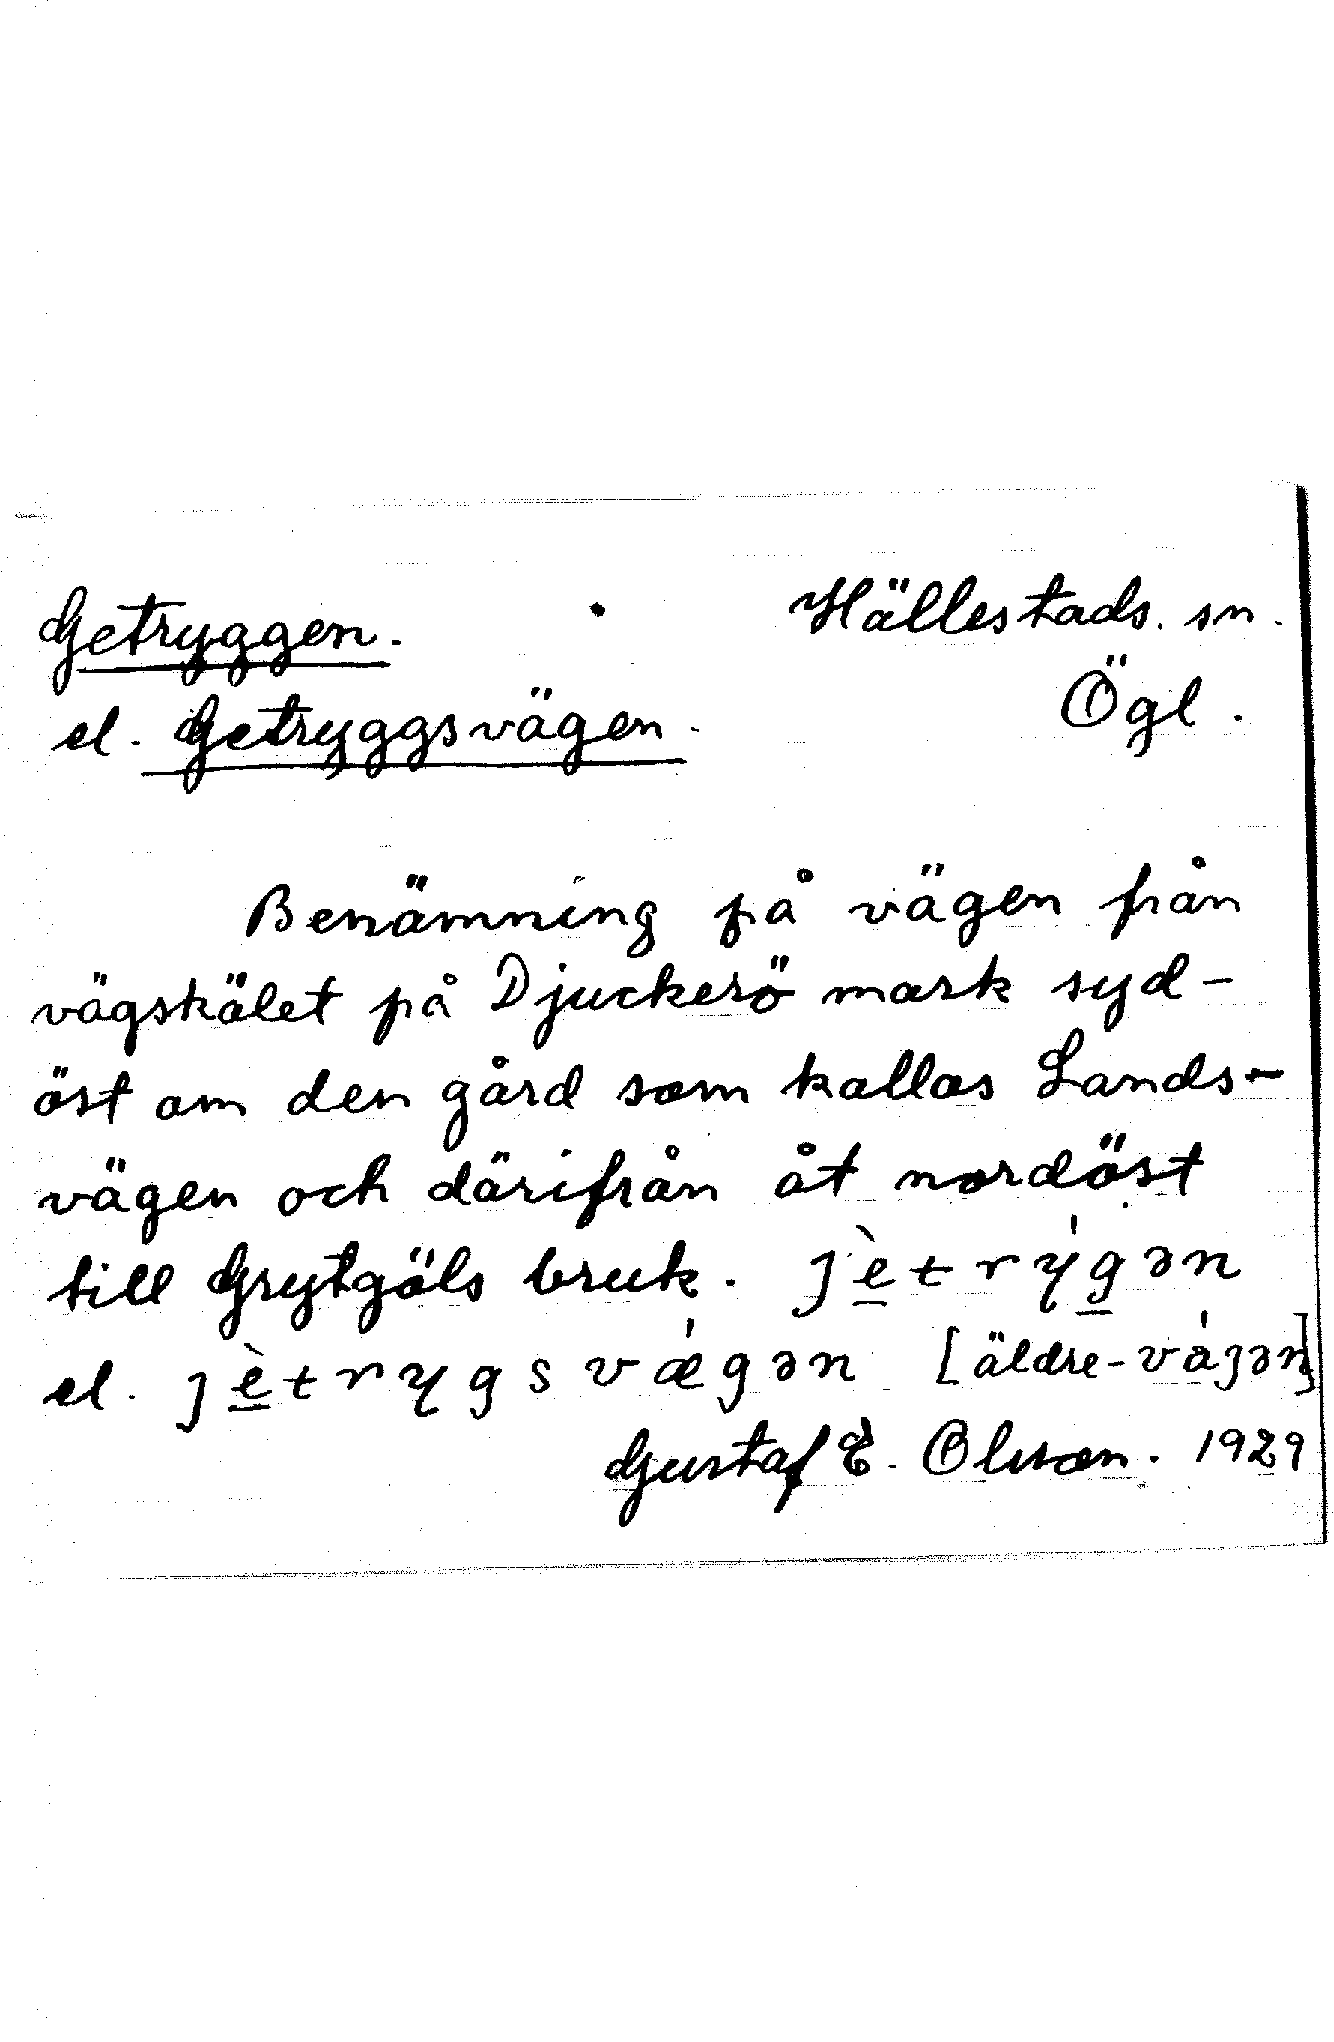 Getryggen. Hällestads. sn.
el. Getryggsvägen. Ögl.
Benämning på vägen från
vägskälet på Djuckerö mark syd-
öst om den gård som kallas Lands-
vägen och därifrån åt nordöst
till Grytgöls bruk. ȷè̱trýg̱ən
el. ȷè̱trygsvǽgən [äldre -váȷən]
Gustaf E. Olsson. 1929